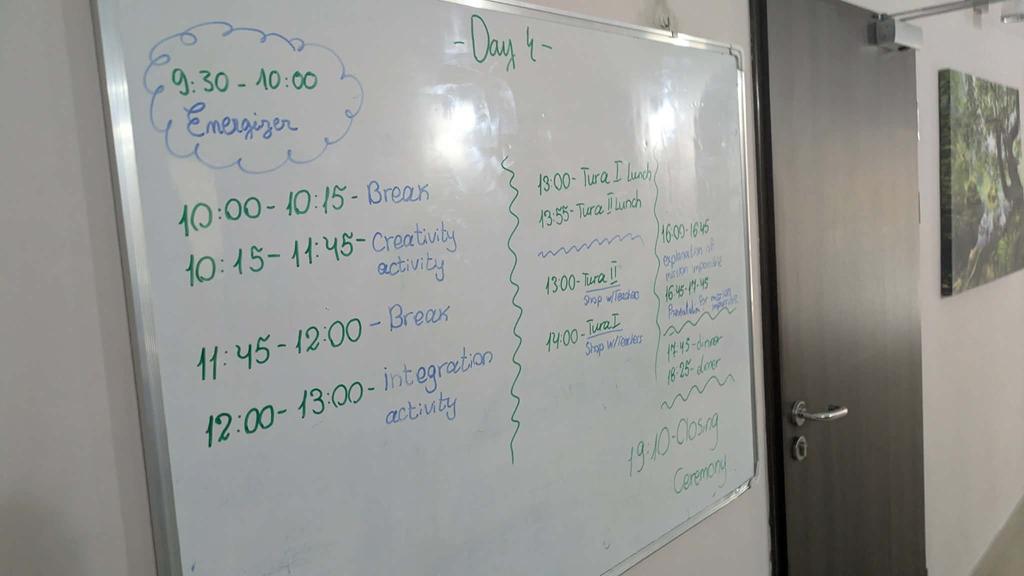 -Day 4-
9:30 - 10:00
Energizer
10:00 - 10:15 - Break
10:15 - 11:45 - Creativity
activity
11:45 - 12:00 - Break
12:00 - 13:00 - integration
activity
13:00 - Tura I Lunch
13:55 - Tura II Lunch
13:00 - Tura II
Shop w/Teachers
14:00 - Tura I
Shop w/Teachers
16:00 - 16:45
explanation of
mission impossible
16:45 - 17:45
for mission
impossible
17:45 - dinner
18:25 - dinner
19:10 - Closing
Ceremony